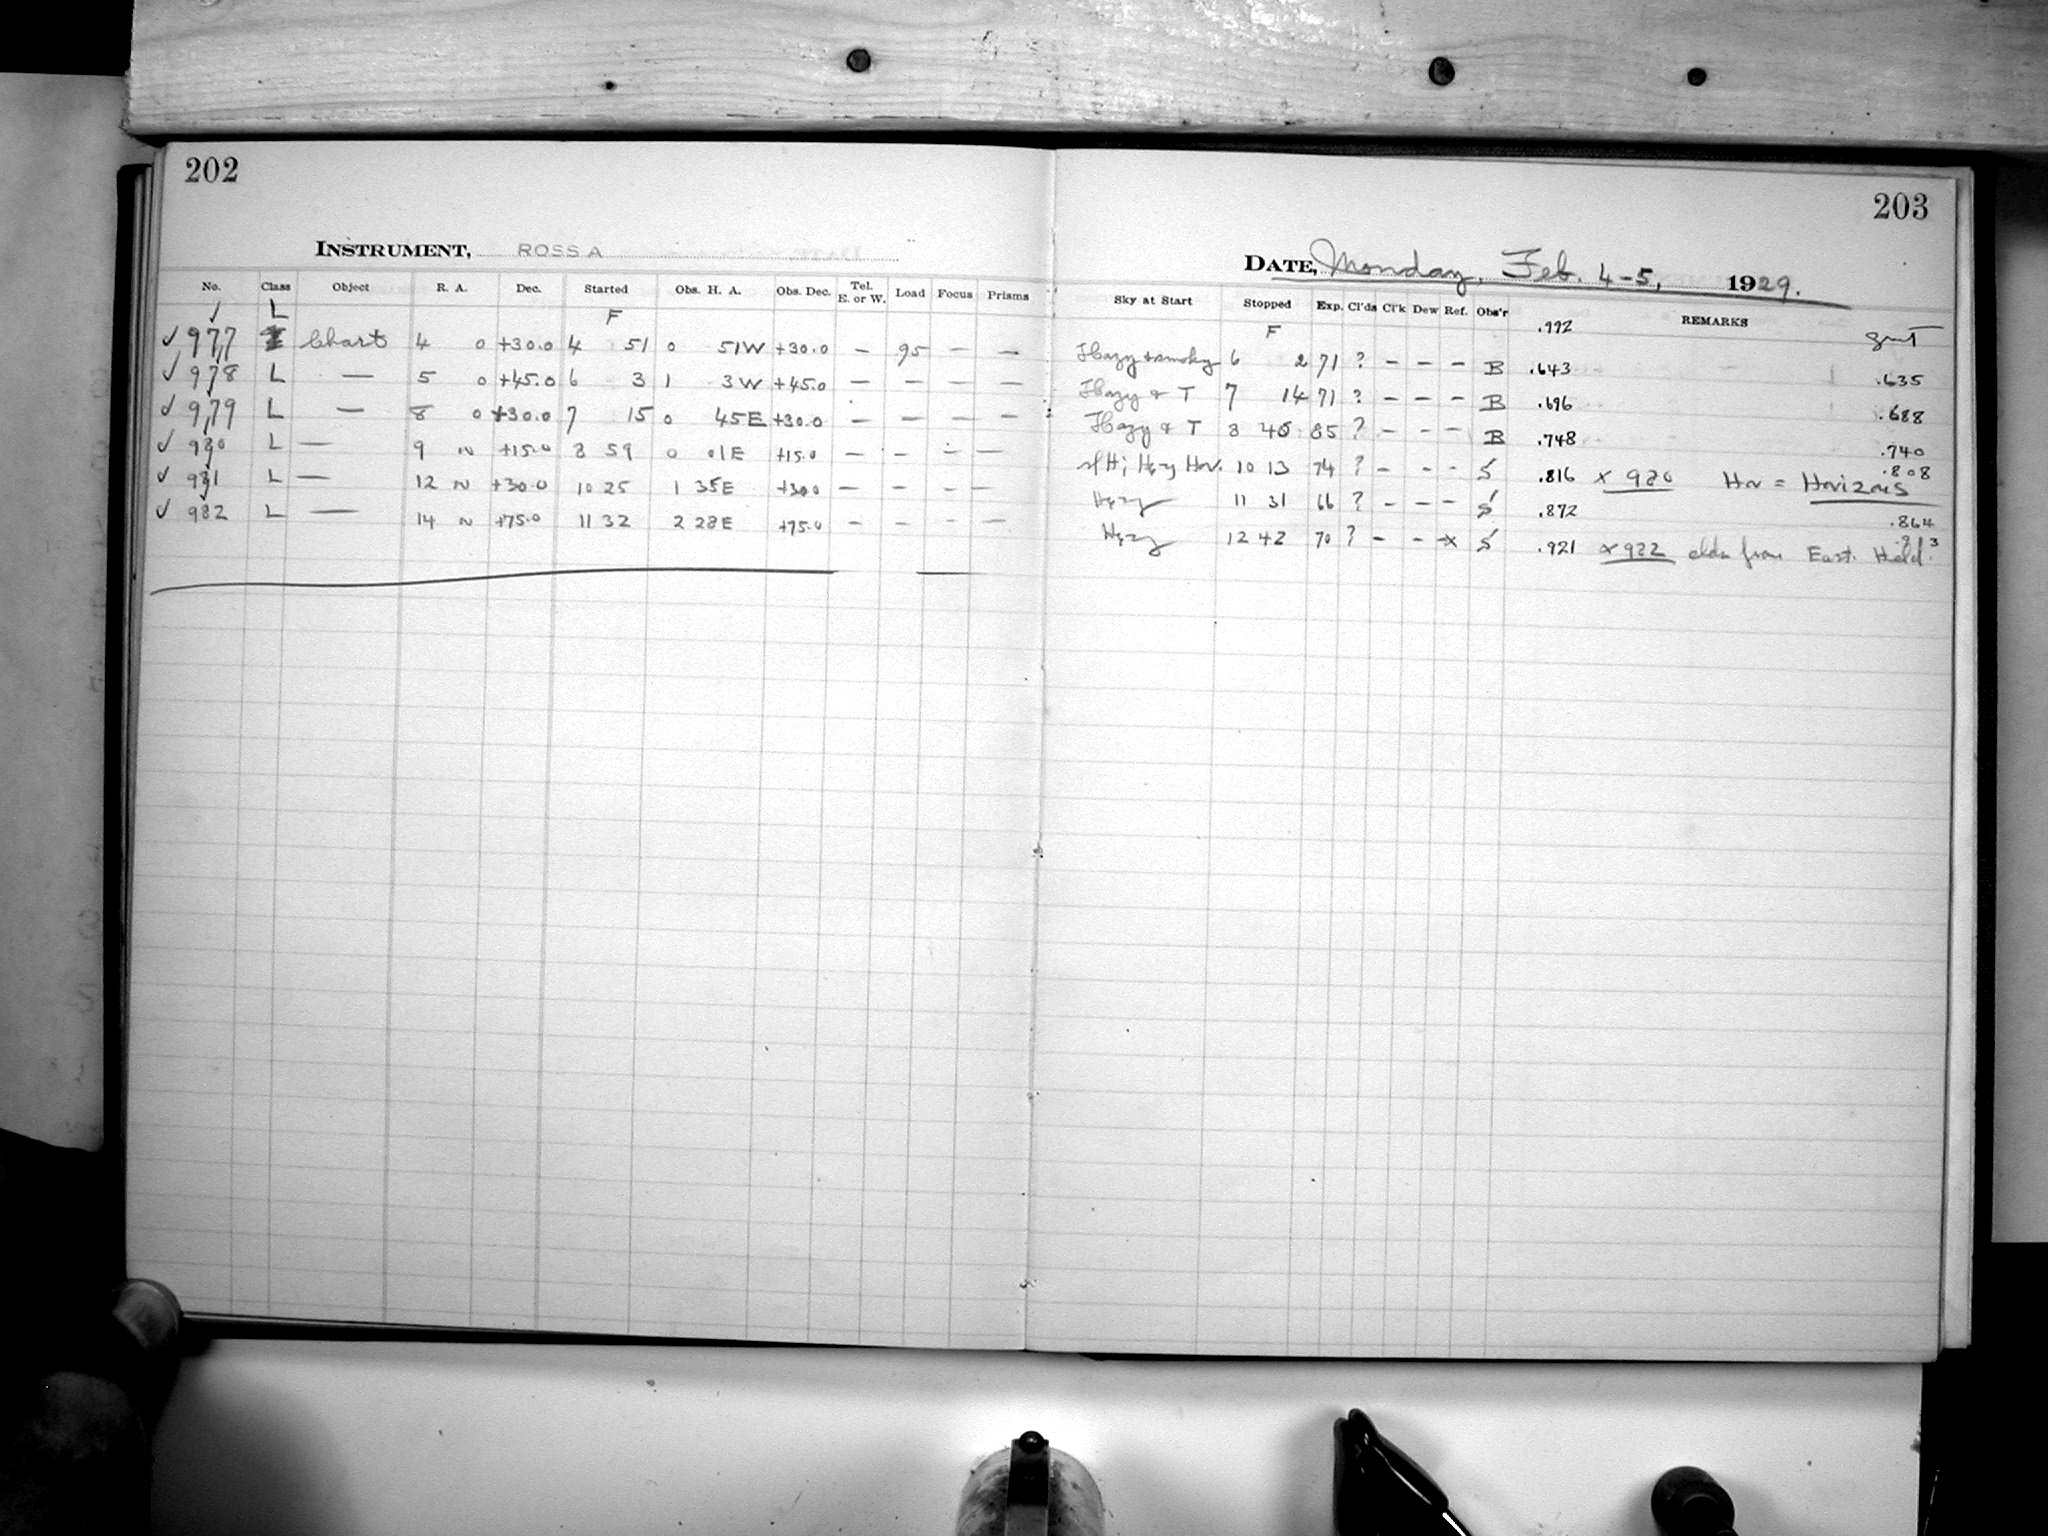 202
INSTRUMENT, ROSS A
No. Class Object R. A. Dec. Started Obs. H. A. Obs. Dec. Tel. E. or W. Load Focus Prisms
L F
977 Chart 4 0 +30.0 4 51 0 51W +30.0 — 95 — —
978 L — 5 0 +45.0 6 3 1 3W +45.0 — — — —
979 L — 8 0 +30.0 7 15 0 45E +30.0 — — — —
980 L — 9 N +15.0 8 59 0 01E +15.0 — — — —
981 L — 12 N +30.0 10 25 1 35E +30.0 — — — —
982 L — 14 N +75.0 11 32 2 28E +75.0 — — — —
203
DATE, Monday, Feb. 4-5, 1929.
Sky at Start Stopped Exp. Cl'ds Cl'k Dew Ref. Obs'r REMARKS
F .992 GMT
Hazy & smoky 6 2 71 ? — — — B .643 .635
Hazy & T 7 14 71 ? — — — B .696 .688
Hazy & T 8 40 85 ? — — — B .748 .740
Hazy Hor. 10 13 74 ? — - - S .816 x 980 Hor = Horizons .808
Hazy 11 31 66 ? — — — S .872 .864
Hazy 12 42 70 ? — - x S .921 x 982 clds from East. Held. .913